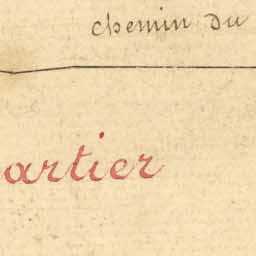 chemin du
artier